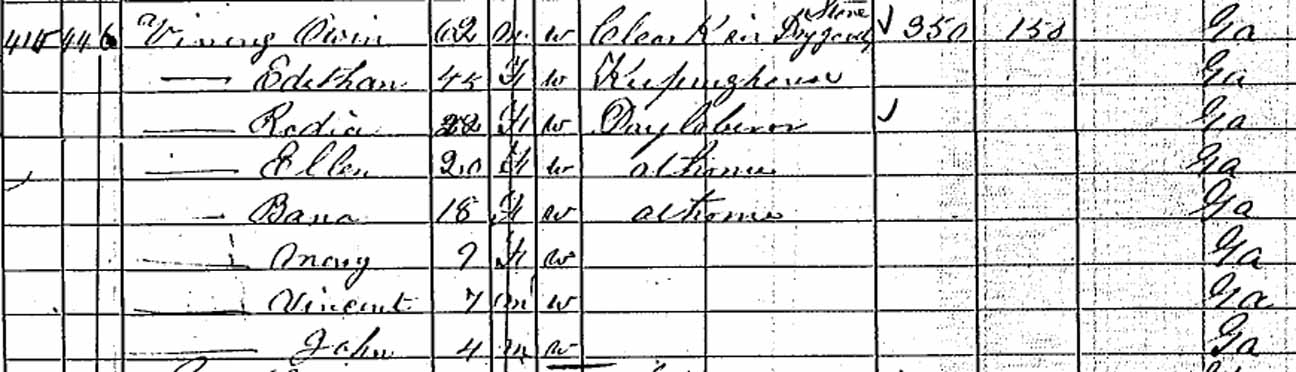 415 446 Vining Owin 62 m w Clear K in Dry goods Store 350 150 Ga
Edethan 45 F w Keepinghouse Ga
Rodia 22 F w Daylaberor Ga
Ellen 20 F w at home Ga
Bana 18 F w at home Ga
Mary 9 F w Ga
Vincent 7 m w Ga
John 4 m w Ga